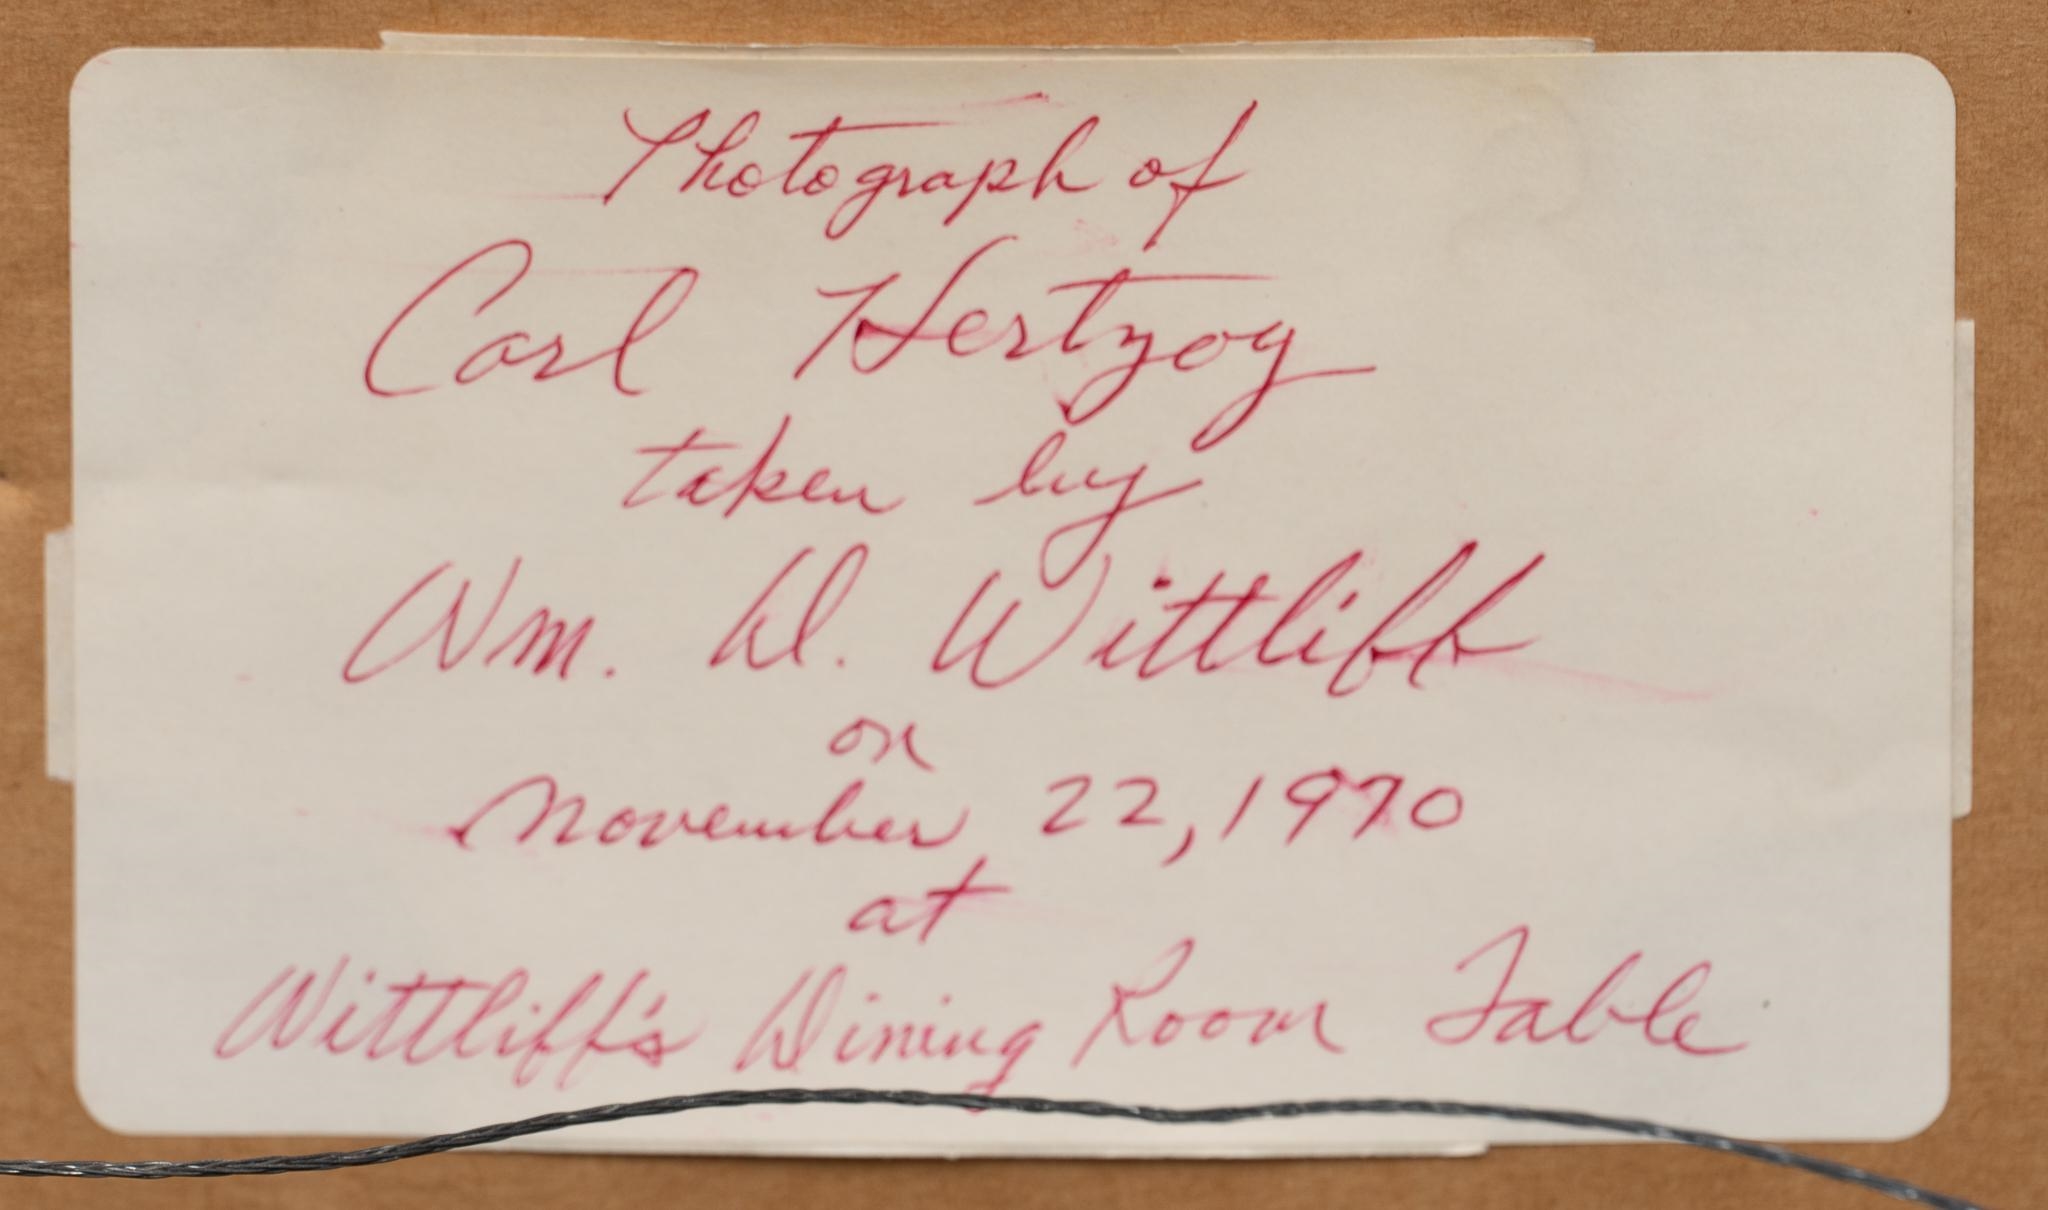 Photograph of
Carl Hertzog
taken by
Wm. D. Wittliff
on
November 22, 1970
at
Wittliff's Dining Room Table